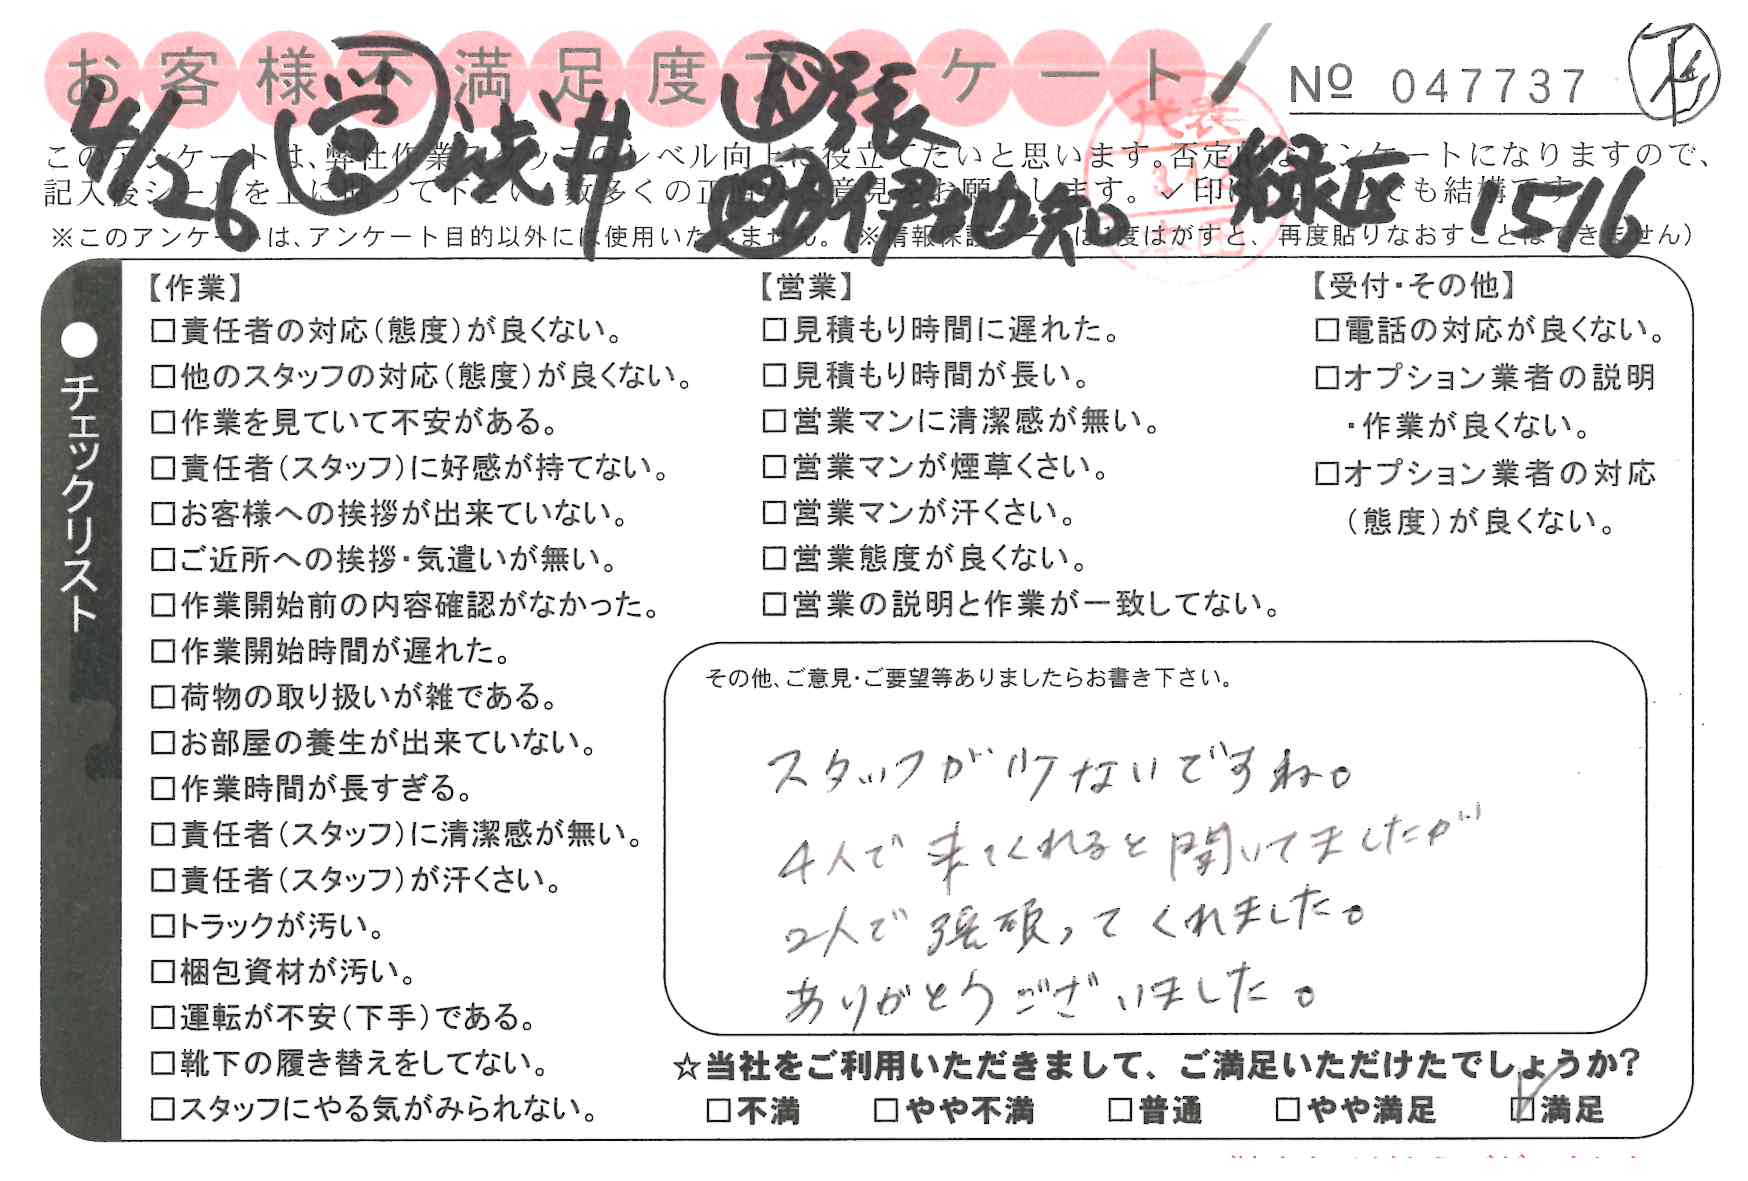 お客様不満足度アンケート
№ 047737
4/26 営 浅井 下張 助伊地知 緑区 1516
このアンケートは、弊社作業スタッフのレベル向上に役立てたいと思います。否定的なアンケートになりますので、
記入後シールを上に貼って下さい。数多くの正直な意見をお願いします。✓印だけでも結構です。
※このアンケートは、アンケート目的以外には使用いたしません。(※情報保護シールは1度はがすと、再度貼りなおすことはできません)
代表
●チェックリスト
【作業】
□責任者の対応(態度)が良くない。
□他のスタッフの対応(態度)が良くない。
□作業を見ていて不安がある。
□責任者(スタッフ)に好感が持てない。
□お客様への挨拶が出来ていない。
□ご近所への挨拶・気遣いが無い。
□作業開始前の内容確認がなかった。
□作業開始時間が遅れた。
□荷物の取り扱いが雑である。
□お部屋の養生が出来ていない。
□作業時間が長すぎる。
□責任者(スタッフ)に清潔感が無い。
□責任者(スタッフ)が汗くさい。
□トラックが汚い。
□梱包資材が汚い。
□運転が不安(下手)である。
□靴下の履き替えをしてない。
□スタッフにやる気がみられない。
【営業】
□見積もり時間に遅れた。
□見積もり時間が長い。
□営業マンに清潔感が無い。
□営業マンが煙草くさい。
□営業マンが汗くさい。
□営業態度が良くない。
□営業の説明と作業が一致してない。
【受付・その他】
□電話の対応が良くない。
□オプション業者の説明
・作業が良くない。
□オプション業者の対応
(態度)が良くない。
その他、ご意見・ご要望等ありましたらお書き下さい。
スタッフが少ないですね。
4人で来てくれると聞いてましたが
2人で頑張ってくれました。
ありがとうございました。
☆当社をご利用いただきまして、ご満足いただけたでしょうか?
□不満 □やや不満 □普通 □やや満足 ☑満足